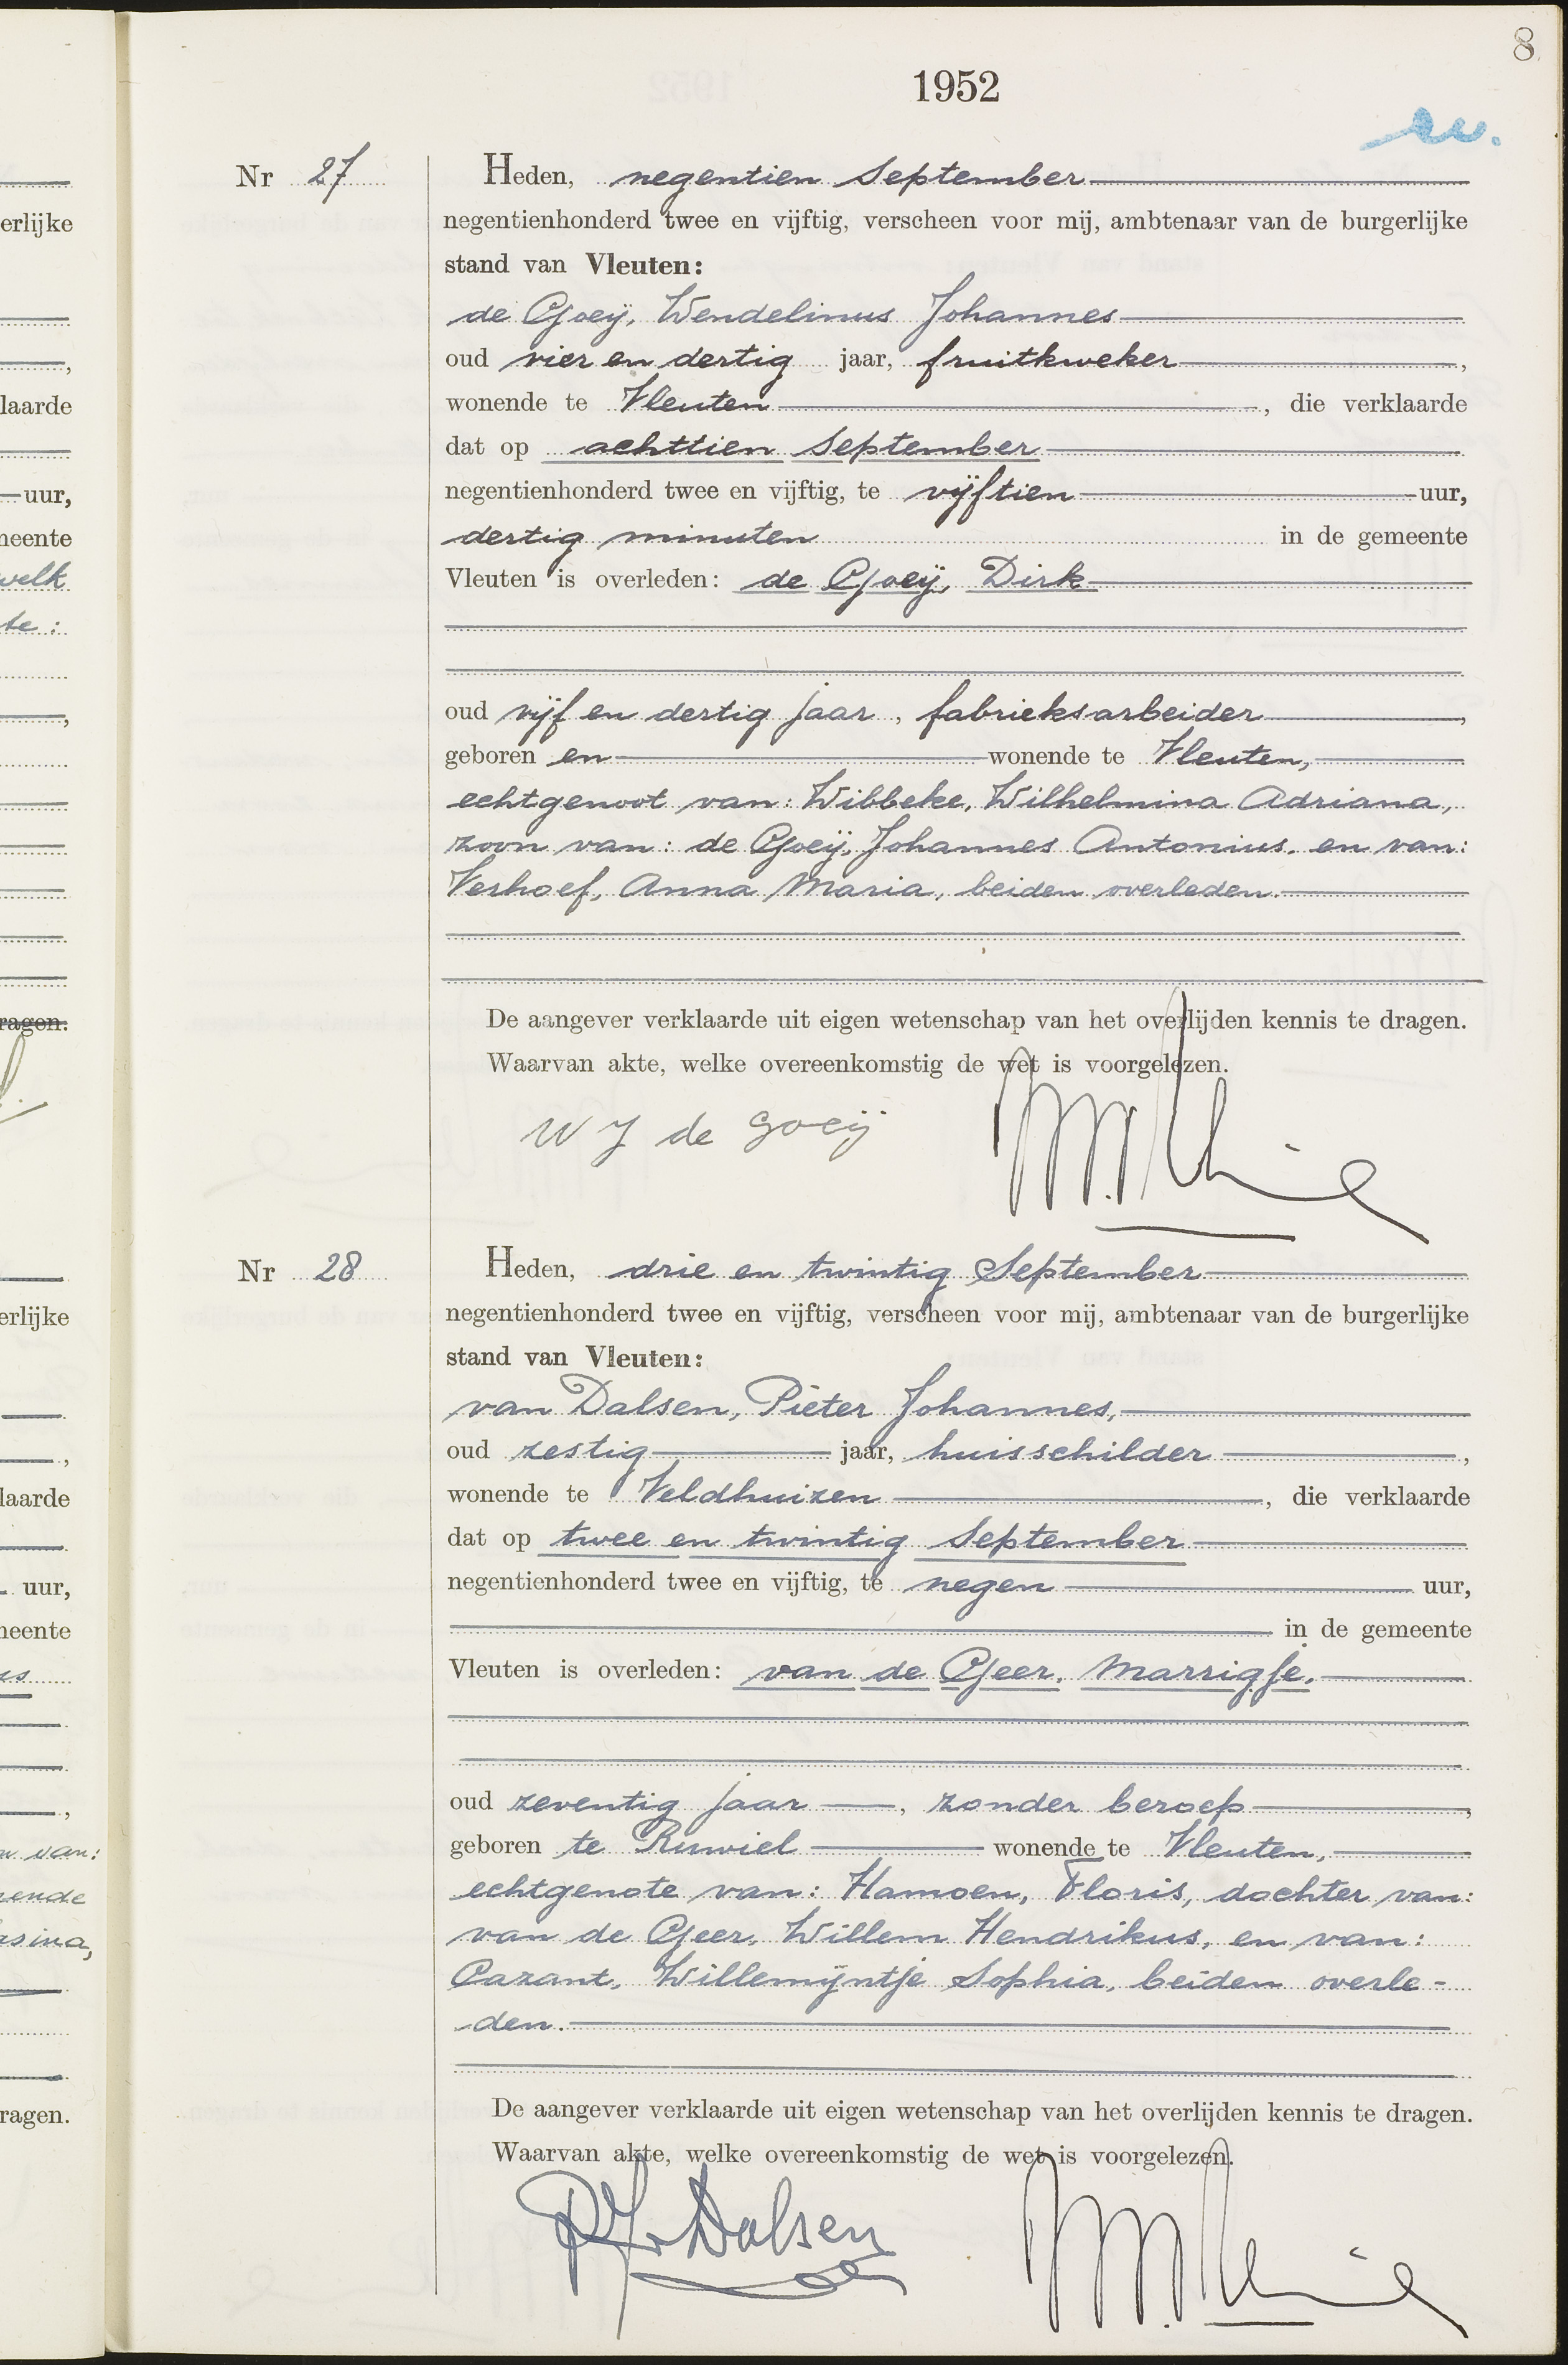 8
1952
Nr 27
Heden, negentien September
negentienhonderd twee en vijftig, verscheen voor mij, ambtenaar van de burgerlijke
stand van Vleuten:
de Goeij, Wendelinus Johannes
oud vier en dertig jaar, fruitkweker,
wonende te Vleuten, die verklaarde
dat op achttien September
negentienhonderd twee en vijftig, te vijftien uur,
dertig minuten in de gemeente
Vleuten is overleden: de Goeij, Dirk
oud vijf en dertig jaar, fabrieksarbeider,
geboren en wonende te Vleuten,
echtgenoot van: Wibbeke, Wilhelmina Adriana,
zoon van: de Goeij, Johannes Antonius, en van:
Verhoef, Anna Maria, beiden overleden.
De aangever verklaarde uit eigen wetenschap van het overlijden kennis te dragen.
Waarvan akte, welke overeenkomstig de wet is voorgelezen.
W J de Goeij
Nr 28
Heden, drie en twintig September
negentienhonderd twee en vijftig, verscheen voor mij, ambtenaar van de burgerlijke
stand van Vleuten:
van Dalsen, Pieter Johannes,
oud zestig jaar, huisschilder,
wonende te Veldhuizen, die verklaarde
dat op twee en twintig September
negentienhonderd twee en vijftig, te negen uur,
in de gemeente
Vleuten is overleden: van de Geer, Marrigje,
oud zeventig jaar, zonder beroep,
geboren te Ruwiel wonende te Vleuten,
echtgenote van: Hamoen, Floris, dochter van:
van de Geer, Willem Hendrikus, en van:
Cazant, Willemijntje Sophia, beiden overle-
den.
De aangever verklaarde uit eigen wetenschap van het overlijden kennis te dragen.
Waarvan akte, welke overeenkomstig de wet is voorgelezen.
PJv Dalsen